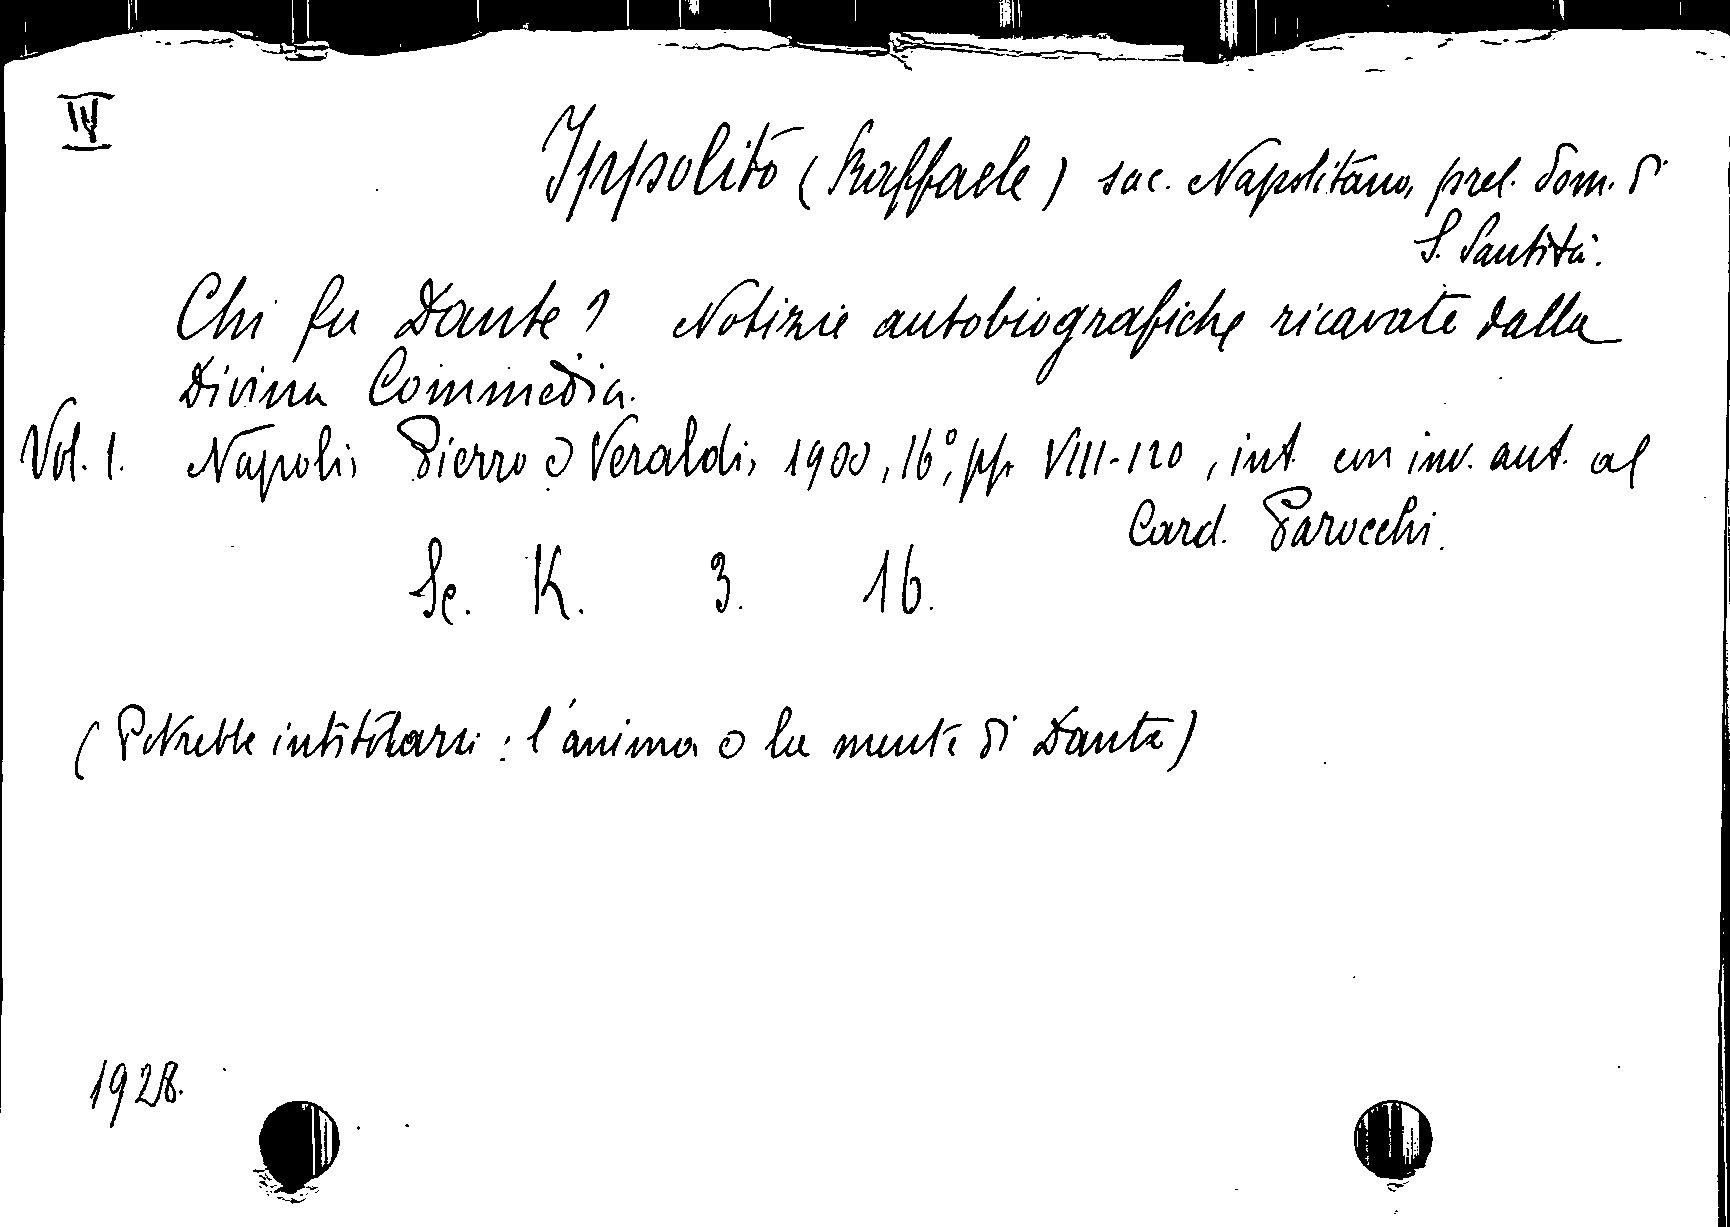 IV
Ippolito (Raffaele) sac. Napolitano, prel. dom. di
S. Santità.
Chi fu Dante? Notizie autobiografiche ricavate dalla
Divina Commedia.
Vol. 1. Napoli, Pierro e Veraldi, 1900, 16°, pp. VIII-120, int. con inv. aut. al
Card. Parocchi.
Sc. K. 3. 16.
(Potrebbe intitolarsi: l'anima o la mente di Dante)
1928.